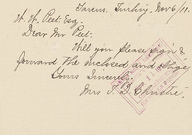 Tarsus, Turkey, Nov 6/11.
W. W. Peet, Esq.
Dear Mr Peet:
Will you please sign &
forward the enclosed and oblige
Yours Sincerely,
Mrs T. D. Christie.